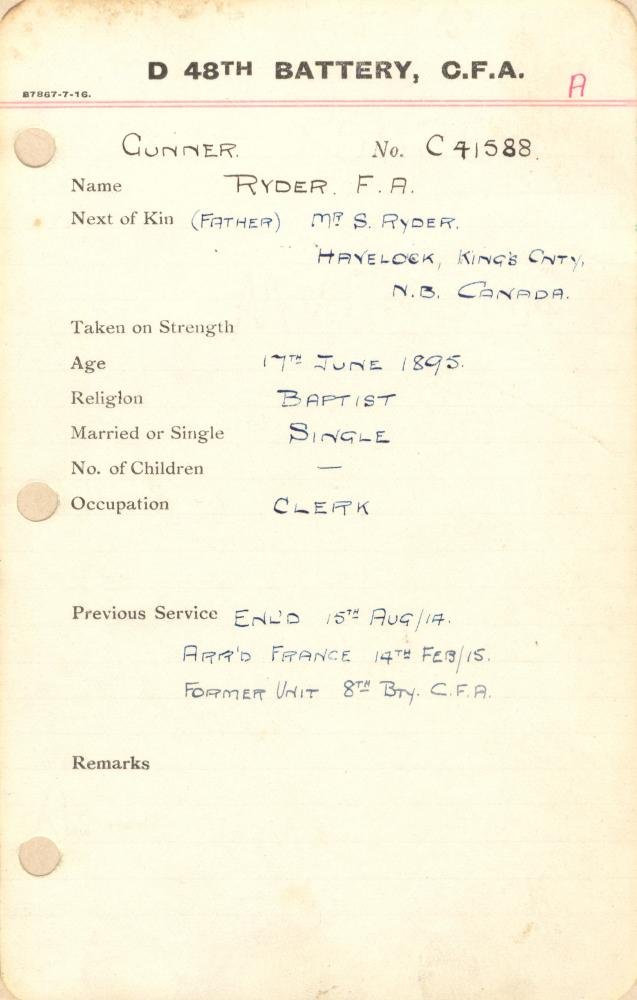 D 48TH BATTERY, C.F.A.
B7867-7-16.
A
GUNNER. No. C 41588.
Name RYDER. F. A.
Next of Kin (FATHER) MR S. RYDER.
HAVELOCK, KING'S CNTY,
N.B. CANADA.
Taken on Strength
Age 17TH JUNE 1895.
Religion BAPTIST
Married or Single SINGLE
No. of Children —
Occupation CLERK
Previous Service ENL'D 15TH AUG/14.
ARR'D FRANCE 14TH FEB/15.
FORMER UNIT 8TH BTY. C.F.A.
Remarks